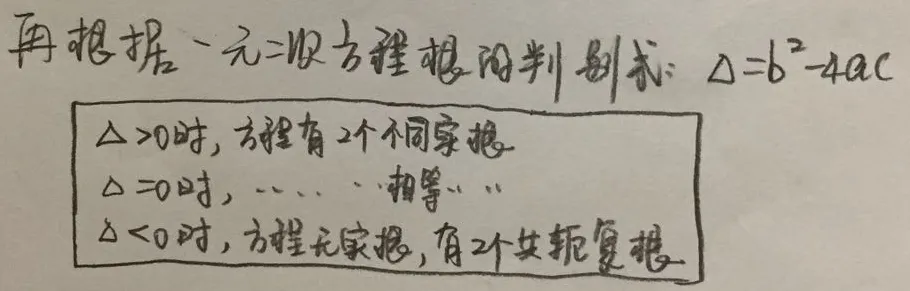 再根据一元二次方程根的判别式: △=b²-4ac
△>0时, 方程有2个不同实根
△=0时, ‥‥‥相等‥‥
△<0时, 方程无实根, 有2个共轭复根